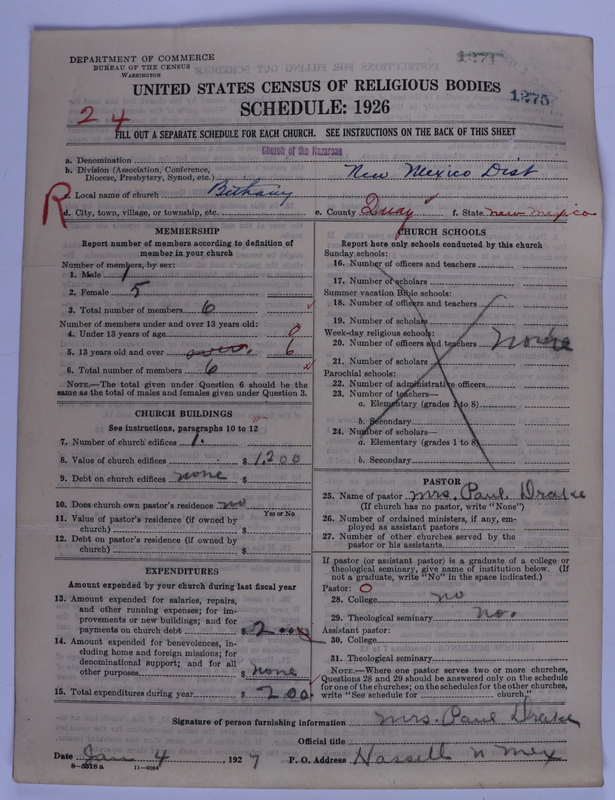 DEPARTMENT OF COMMERCE
BUREAU OF THE CENSUS
WASHINGTON
1271
UNITED STATES CENSUS OF RELIGIOUS BODIES
1275
SCHEDULE: 1926
24
FILL OUT A SEPARATE SCHEDULE FOR EACH CHURCH. SEE INSTRUCTIONS ON THE BACK OF THIS SHEET
Church of the Nazarene
a. Denomination
b. Division (Association, Conference, Diocese, Presbytery, Synod, etc.) New Mexico Dist
R
c. Local name of church Bethany
d. City, town, village, or township, etc. e. County Quay f. State New Mexico
MEMBERSHIP
Report number of members according to definition of
member in your church
Number of members, by sex:
1. Male 1
2. Female 5
3. Total number of members 6
Number of members under and over 13 years old:
4. Under 13 years of age 0
5. 13 years old and over over. 6
6. Total number of members 6
NOTE.—The total given under Question 6 should be the
same as the total of males and females given under Question 3.
CHURCH BUILDINGS
See instructions, paragraphs 10 to 12
7. Number of church edifices 1.
8. Value of church edifices $ 1,200
9. Debt on church edifices none $
10. Does church own pastor's residence no
Yes or No
11. Value of pastor's residence (if owned by
church) $
12. Debt on pastor's residence (if owned by
church) $
EXPENDITURES
Amount expended by your church during last fiscal year
13. Amount expended for salaries, repairs,
and other running expenses; for im-
provements or new buildings; and for
payments on church debt $ 200
14. Amount expended for benevolences, in-
cluding home and foreign missions; for
denominational support; and for all
other purposes $ none
15. Total expenditures during year $ 200.
CHURCH SCHOOLS
Report here only schools conducted by this church
Sunday schools:
16. Number of officers and teachers
17. Number of scholars
Summer vacation Bible schools:
18. Number of officers and teachers
19. Number of scholars
Week-day religious schools:
20. Number of officers and teachers None
21. Number of scholars
Parochial schools:
22. Number of administrative officers
23. Number of teachers—
a. Elementary (grades 1 to 8)
b. Secondary
24. Number of scholars—
a. Elementary (grades 1 to 8)
b. Secondary
PASTOR
25. Name of pastor Mrs. Paul Drake
(If church has no pastor, write "None")
26. Number of ordained ministers, if any, em-
ployed as assistant pastors
27. Number of other churches served by the
pastor or his assistants
If pastor (or assistant pastor) is a graduate of a college or
theological seminary, give name of institution below. (If
not a graduate, write "No" in the space indicated.)
Pastor: 0
28. College no
29. Theological seminary no.
Assistant pastor:
30. College
31. Theological seminary
NOTE.—Where one pastor serves two or more churches,
Questions 28 and 29 should be answered only on the schedule
for one of the churches; on the schedules for the other churches,
write "See schedule for church."
Signature of person furnishing information Mrs. Paul Drake
Official title
Date Jan 4, 1927 P. O. Address Hassell N Mex
8-5518a 11-9054